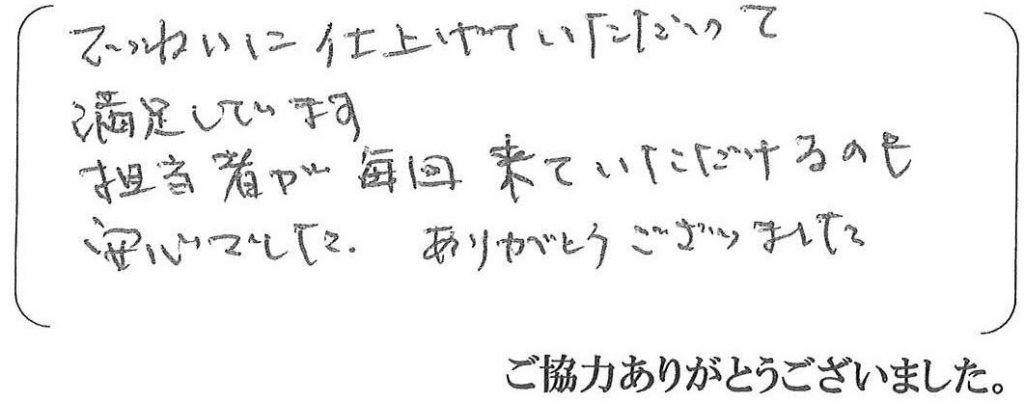 ていねいに仕上げていただいて
満足しています
担当者が毎回来ていただけるのも
安心でした. ありがとうございました
ご協力ありがとうございました。